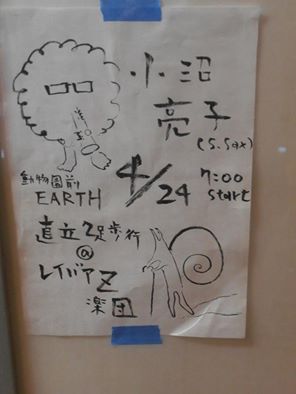 小沼
亮子
(S.Sax)
動物園前
EARTH
4/24
7:00
Start
直立2足歩行
@
レイバアZ
楽団